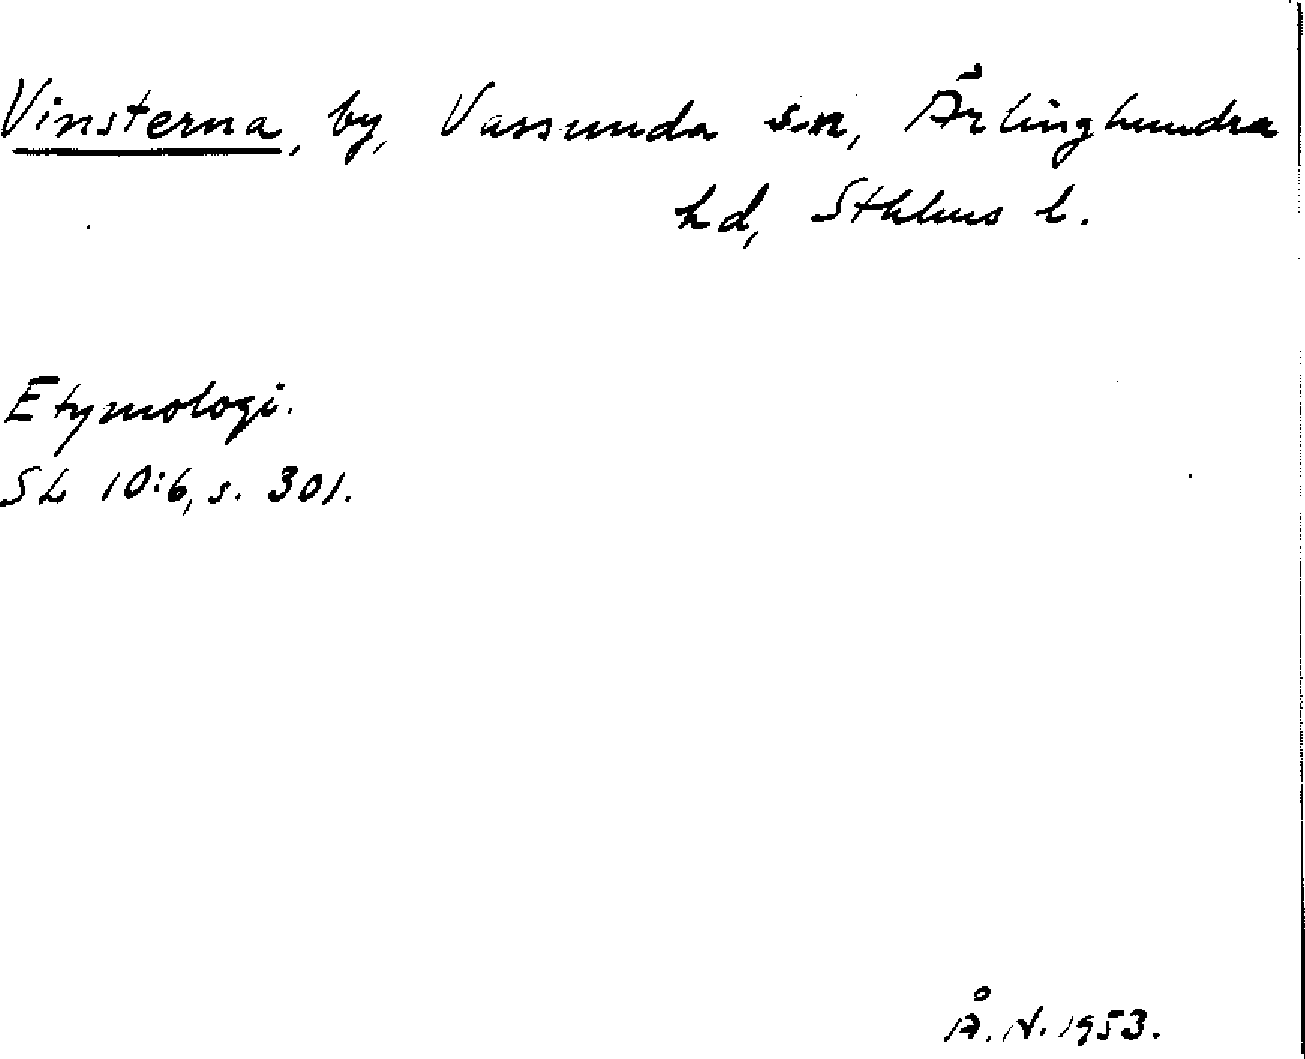 Vinsterna, by, Vassunda sn, Ärlinghundra
hd, Sthlms l.
Etymologi.
SL 10:6, s. 301.
Å. N. 1953.